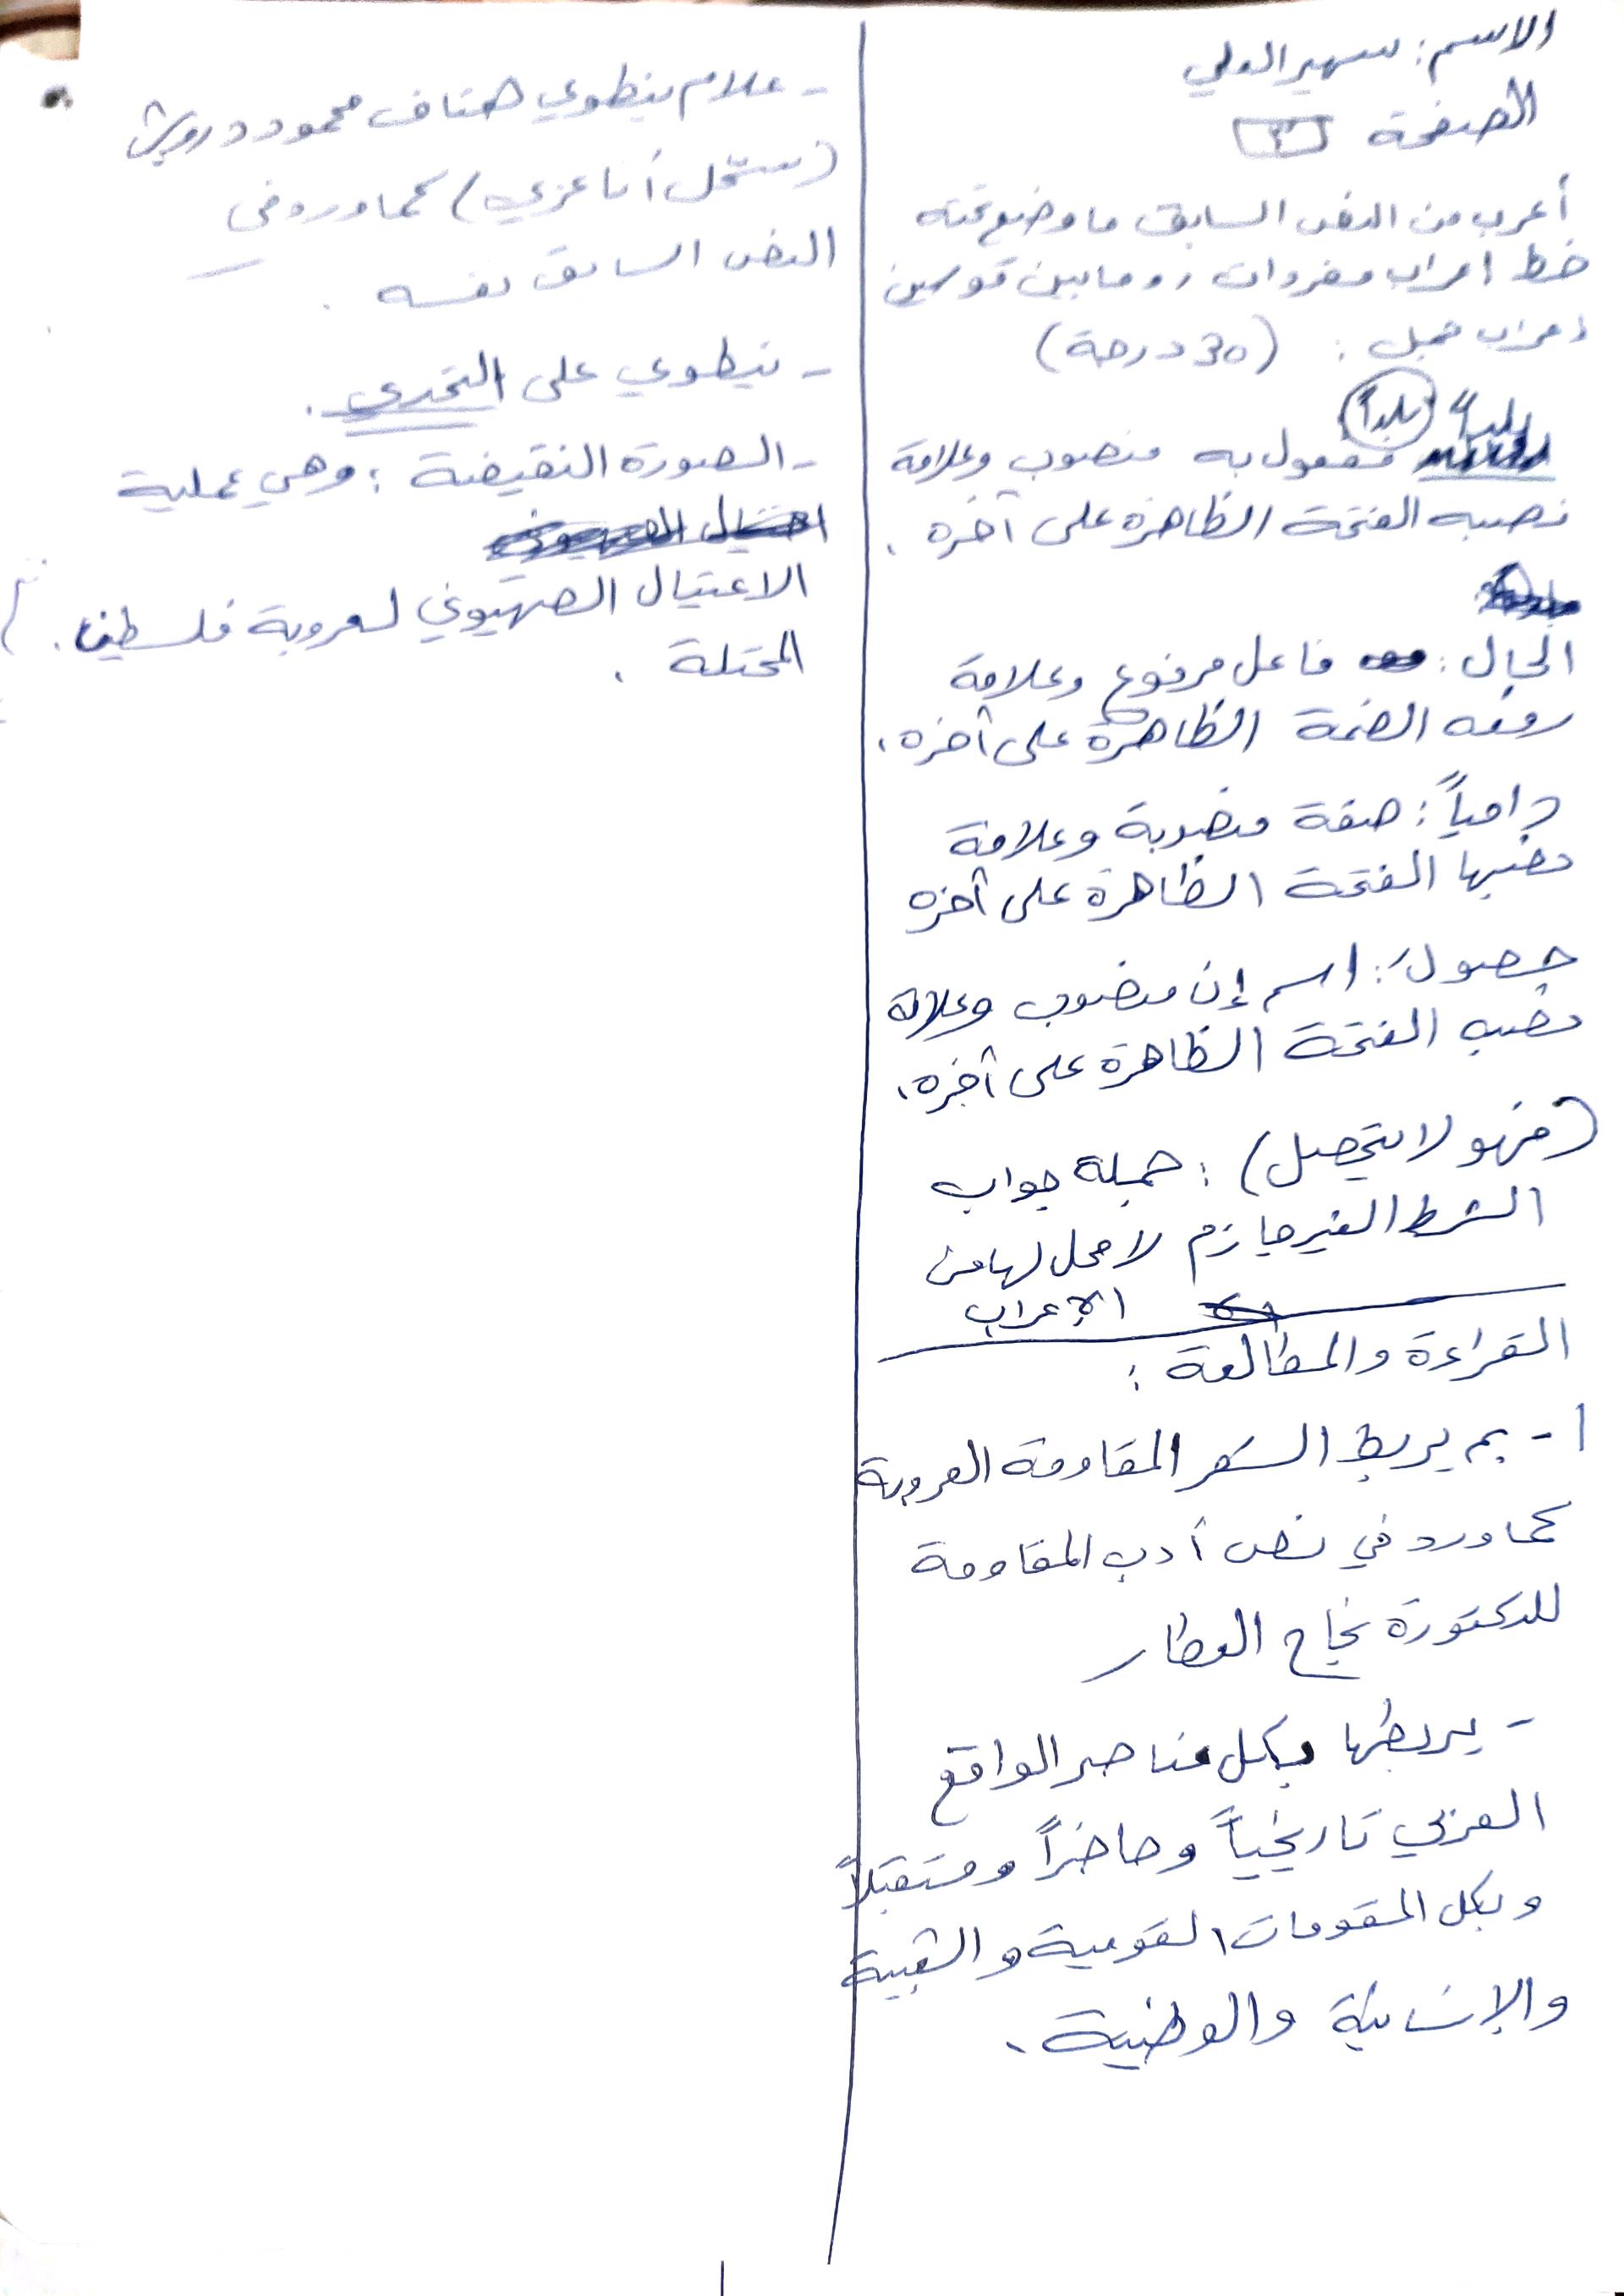 الاسم: سهير العلي
الصفحة ٣
أعرب من النص السابق ما وضع تحته
خط إعراب مفردات وما بين قوسين
إعراب جمل: (30 درجة)
بلداً بلداً
مفعول به منصوب وعلامة
نصبه الفتحة الظاهرة على آخره.
الجبال: فاعل مرفوع وعلامة
رفعه الضمة الظاهرة على آخره.
دامياً: صفة منصوبة وعلامة
نصبها الفتحة الظاهرة على آخره
حصولَ: اسم إن منصوب وعلامة
نصبه الفتحة الظاهرة على آخره.
(فهو لا يتحصل): جملة جواب
الشرط الغير جازم لا محل لها من
الإعراب
القراءة والمطالعة:
١- بم يربط الشعر المقاومة العروبة
كما ورد في نص أدب المقاومة
للدكتورة نجاح العطار
- يربطها بكل عناصر الواقع
العربي تاريخياً وحاضراً ومستقبلاً
وبكل المقومات القومية والشعبية
والإنسانية والوطنية.
- علام ينطوي هتاف محمود درويش
(سجّل أنا عربي) كما ورد في
النص السابق نفسه.
- ينطوي على التحدي.
- الصورة النقيضة: وهي عملية
الاغتيال الصهيوني لعروبة فلسطين.
المحتلة.